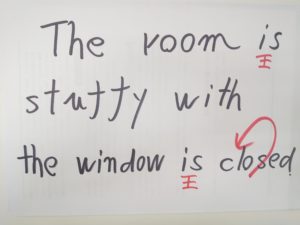 The room is
stuffy with
the window is closed